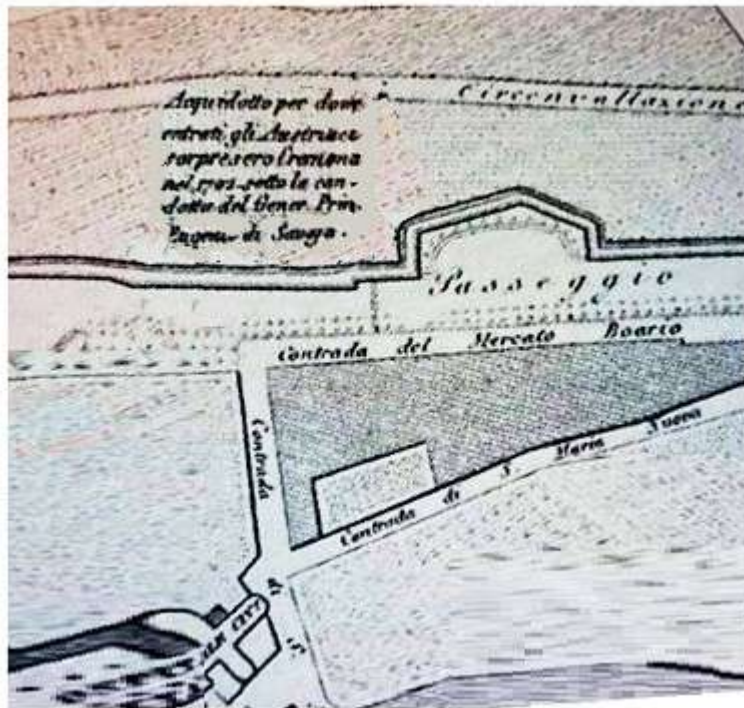 Acquedotto per dove
entrati gli Austriaci
sorpresero Cremona
nel 1702 sotto la con-
dotta del Gener. Prin.
Eugen. di Savoja.
Circonvallazione
Passeggio
Contrada del Mercato Boario
Contrada
Contrada di S. Maria Nuova
di S.